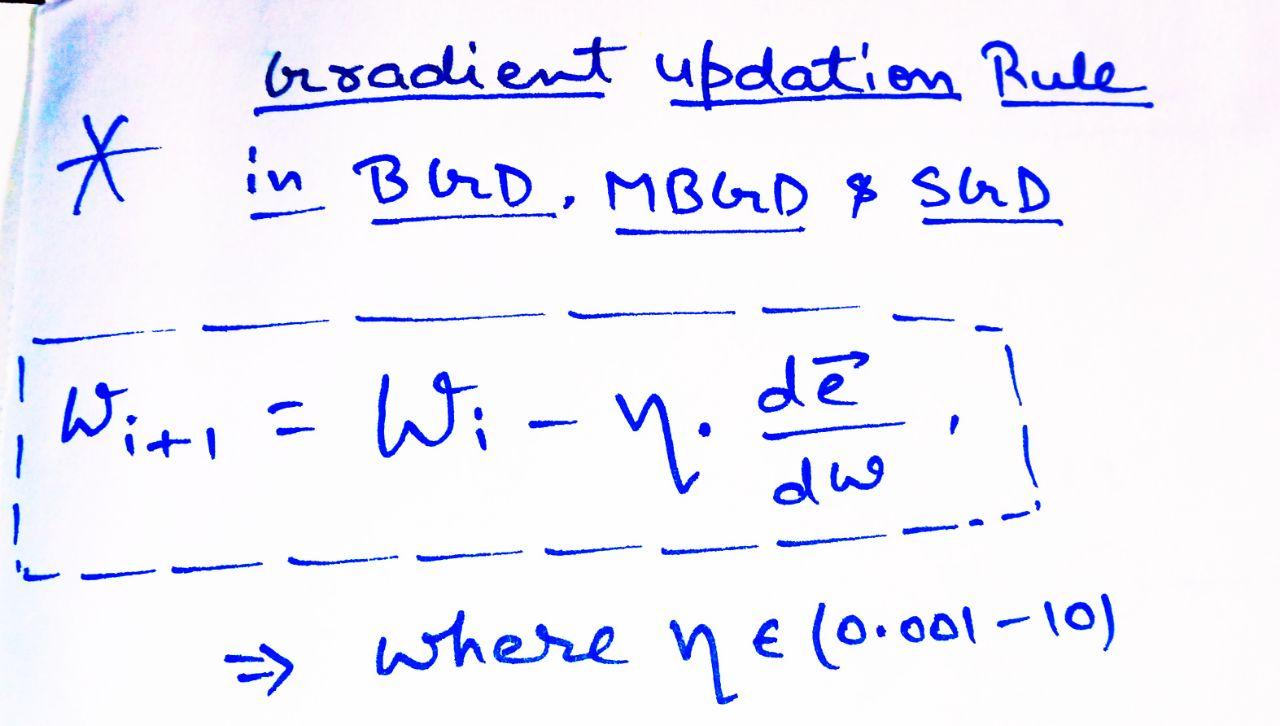 Gradient updation Rule
* in BGD, MBGD & SGD
Wi+1 = Wi - η. de⃗/dw ,
⇒ where η ∈ (0.001-10)